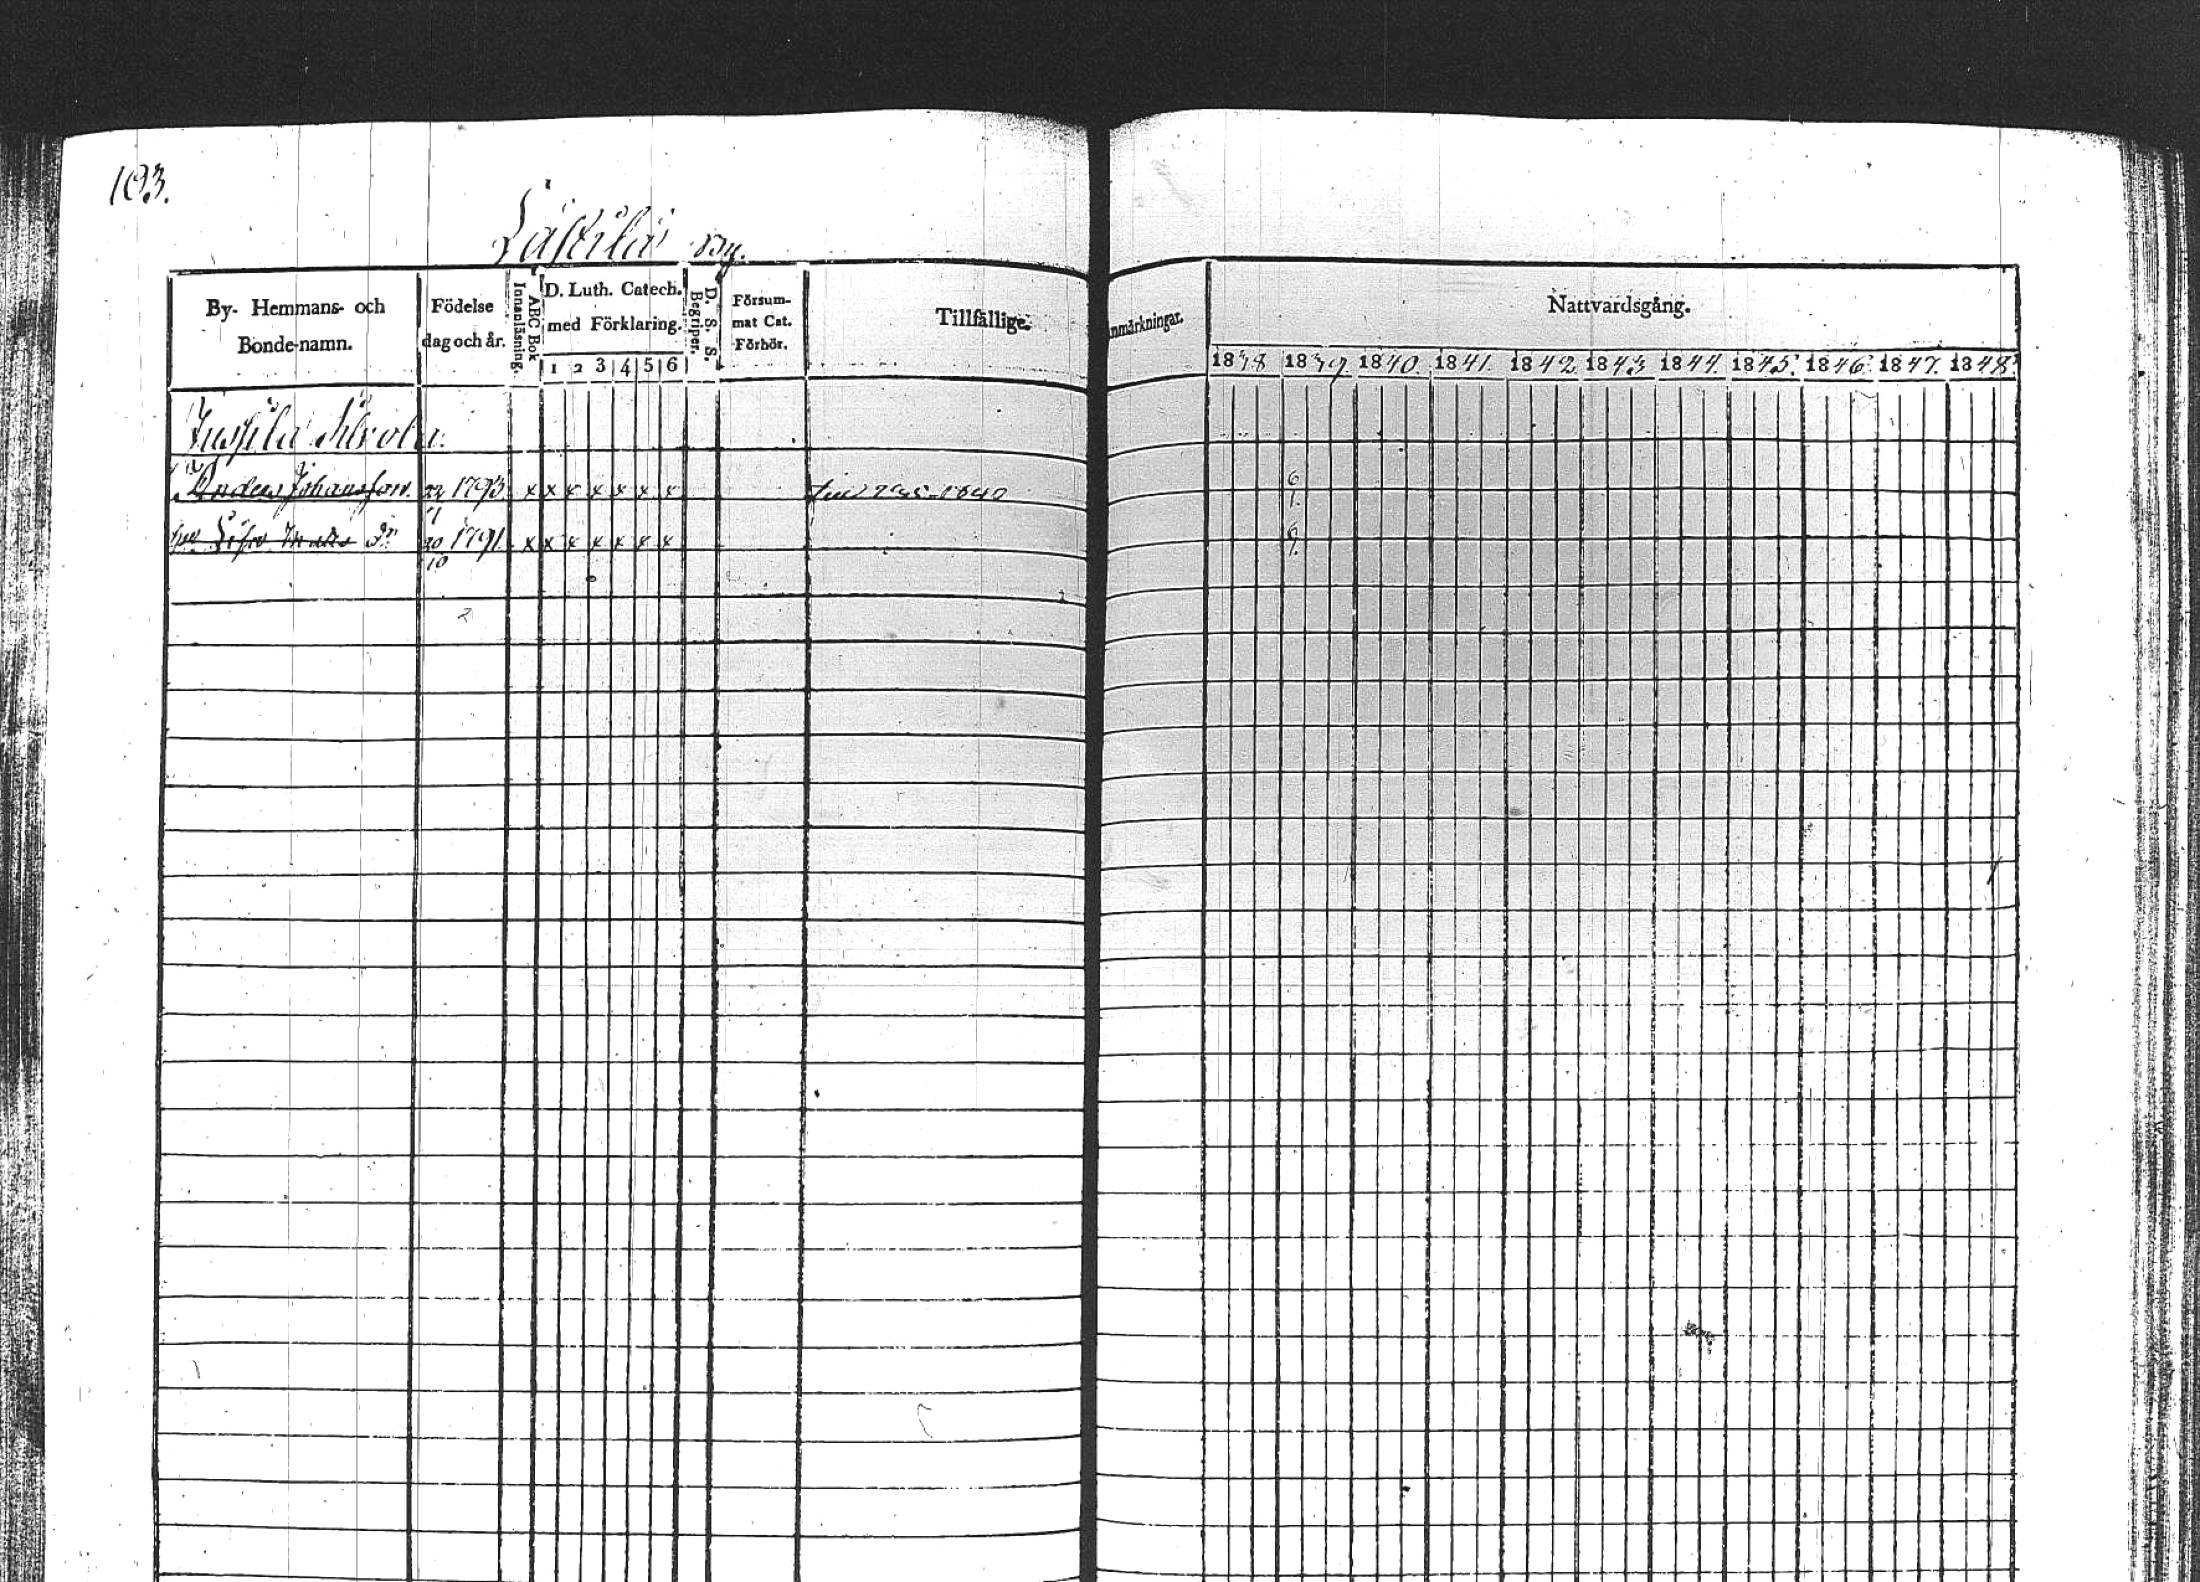 103.
by.
By- Hemmans- och
Bonde-namn.
Födelse
dag och år.
ABC Bok
Innanläsning.
D. Luth. Catech.
med Förklaring.
1 2 3 4 5 6
D. S. S.
Begriper.
Försum-
mat Cat.
Förhör.
Tillfällige
nmärkningar.
Nattvardsgång.
1838 1839. 1840. 1841. 1842 1843 1844. 1845. 1846. 1847. 1848.
Anders Johansson. 1793 x x x x x x x 6
1.
20 1791. x x x x x x x 6
10